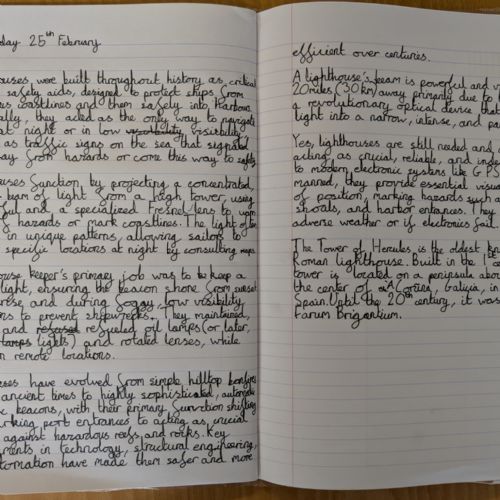 day 25th February
ouses, were built throughout history as critical
safety aids, designed to protect ships from
ous coastlines and them safely into harbours.
ally, they acted as the only way to navigate
at night or in low visibility
as traffic signs on the sea that signaled
way from hazards or come this way to safety.
ouses function by projecting a concentrated,
beam of light from a high tower, using
ful and a specialized Fresnel lens to warn
of hazards or mark coastlines. The light
in unique patterns, allowing sailors to
specific locations at night by consulting maps
ouse keeper's primary job was to keep a
light, ensuring the beacon shone from sunset
rise and during foggy, low visibility
ons to prevent shipwrecks. They maintained,
and refueled oil lamps (or later,
lights) and rotated lenses, while
in remote locations.
uses have evolved from simple hilltop bonfires
ancient times to highly sophisticated, automated
beacons, with their primary function shifting
arking port entrances to acting as crucial
against hazardous reefs and rocks. Key
ments in technology, structural engineering,
tomation have made them safer and more
efficient over centuries.
A lighthouse's beam is powerful and v
20 miles (30 km) away primarily due to
a revolutionary optical device that
light into a narrow, intense, and pa
Yes, lighthouses are still needed and
acting as crucial, reliable, and inde
to modern electronic systems like GPS
manned, they provide essential visua
of position, marking hazards such a
shoals, and harbor entrances. They
adverse weather or if electronics fail.
The Tower of Hercules, is the oldest kn
Roman lighthouse. Built in the 1st c
tower is located on a peninsula abov
the center of A Coruña, Galicia, in
Spain. Until the 20th century, it was
Farum Brigantium.